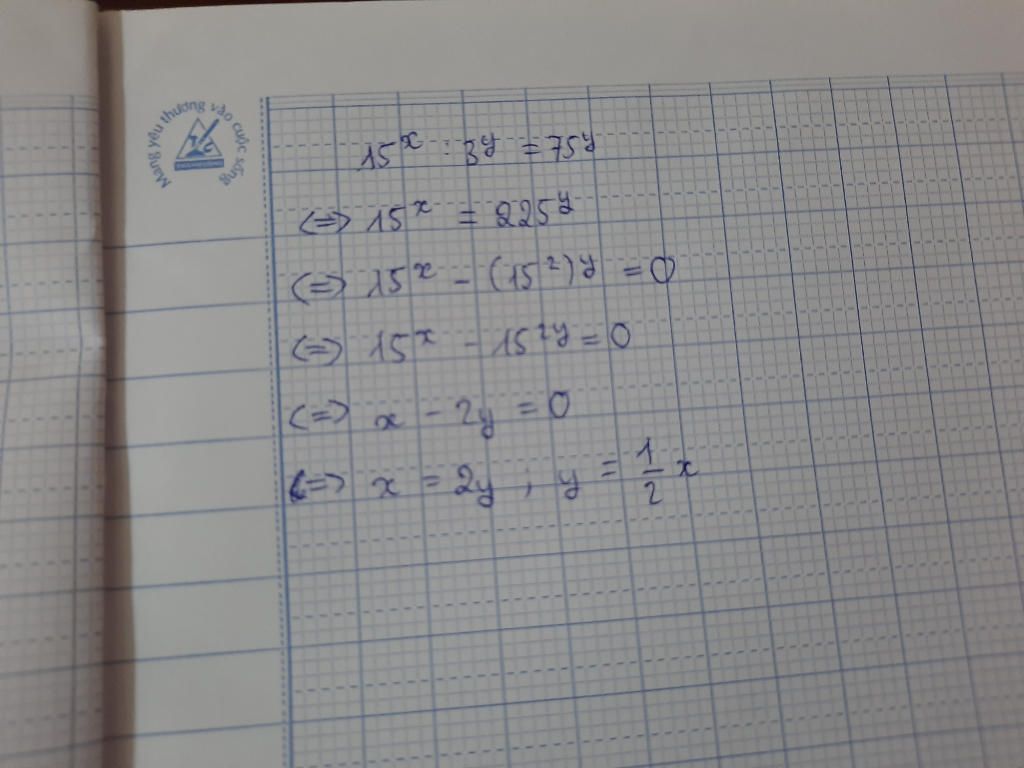 Mang yêu thương vào cuộc sống
15^x : 3^y = 75^y
<=> 15^x = 225^y
<=> 15^x - (15^2)^y = 0
<=> 15^x - 15^2y = 0
<=> x - 2y = 0
<=> x = 2y ; y = 1/2 x